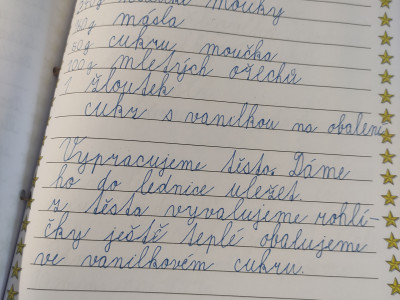 mouky
másla
cukru moučka
100g mletých ořechů
1 žloutek
cukr s vanilkou na obalení
Vypracujeme těsto. Dáme
ho do lednice uležet.
z těsta vyvalujeme rohlí-
čky ještě teplé obalujeme
ve vanilkovém cukru.